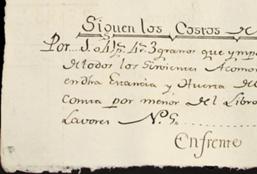 Siguen los Costos de
Por 1.041 ps. 4 rs. 3 granos que ymp
de todos los Sirvientes Acomo
en dha Estancia y Huerta de
consta por menor del Libro
Lavores Nº 5
Enfrente